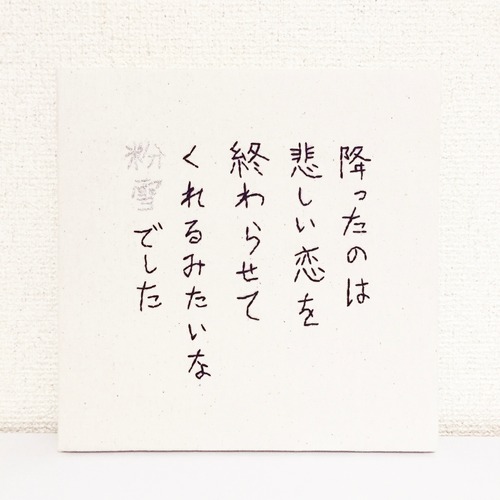 降ったのは
悲しい恋を
終わらせて
くれるみたいな
粉雪でした